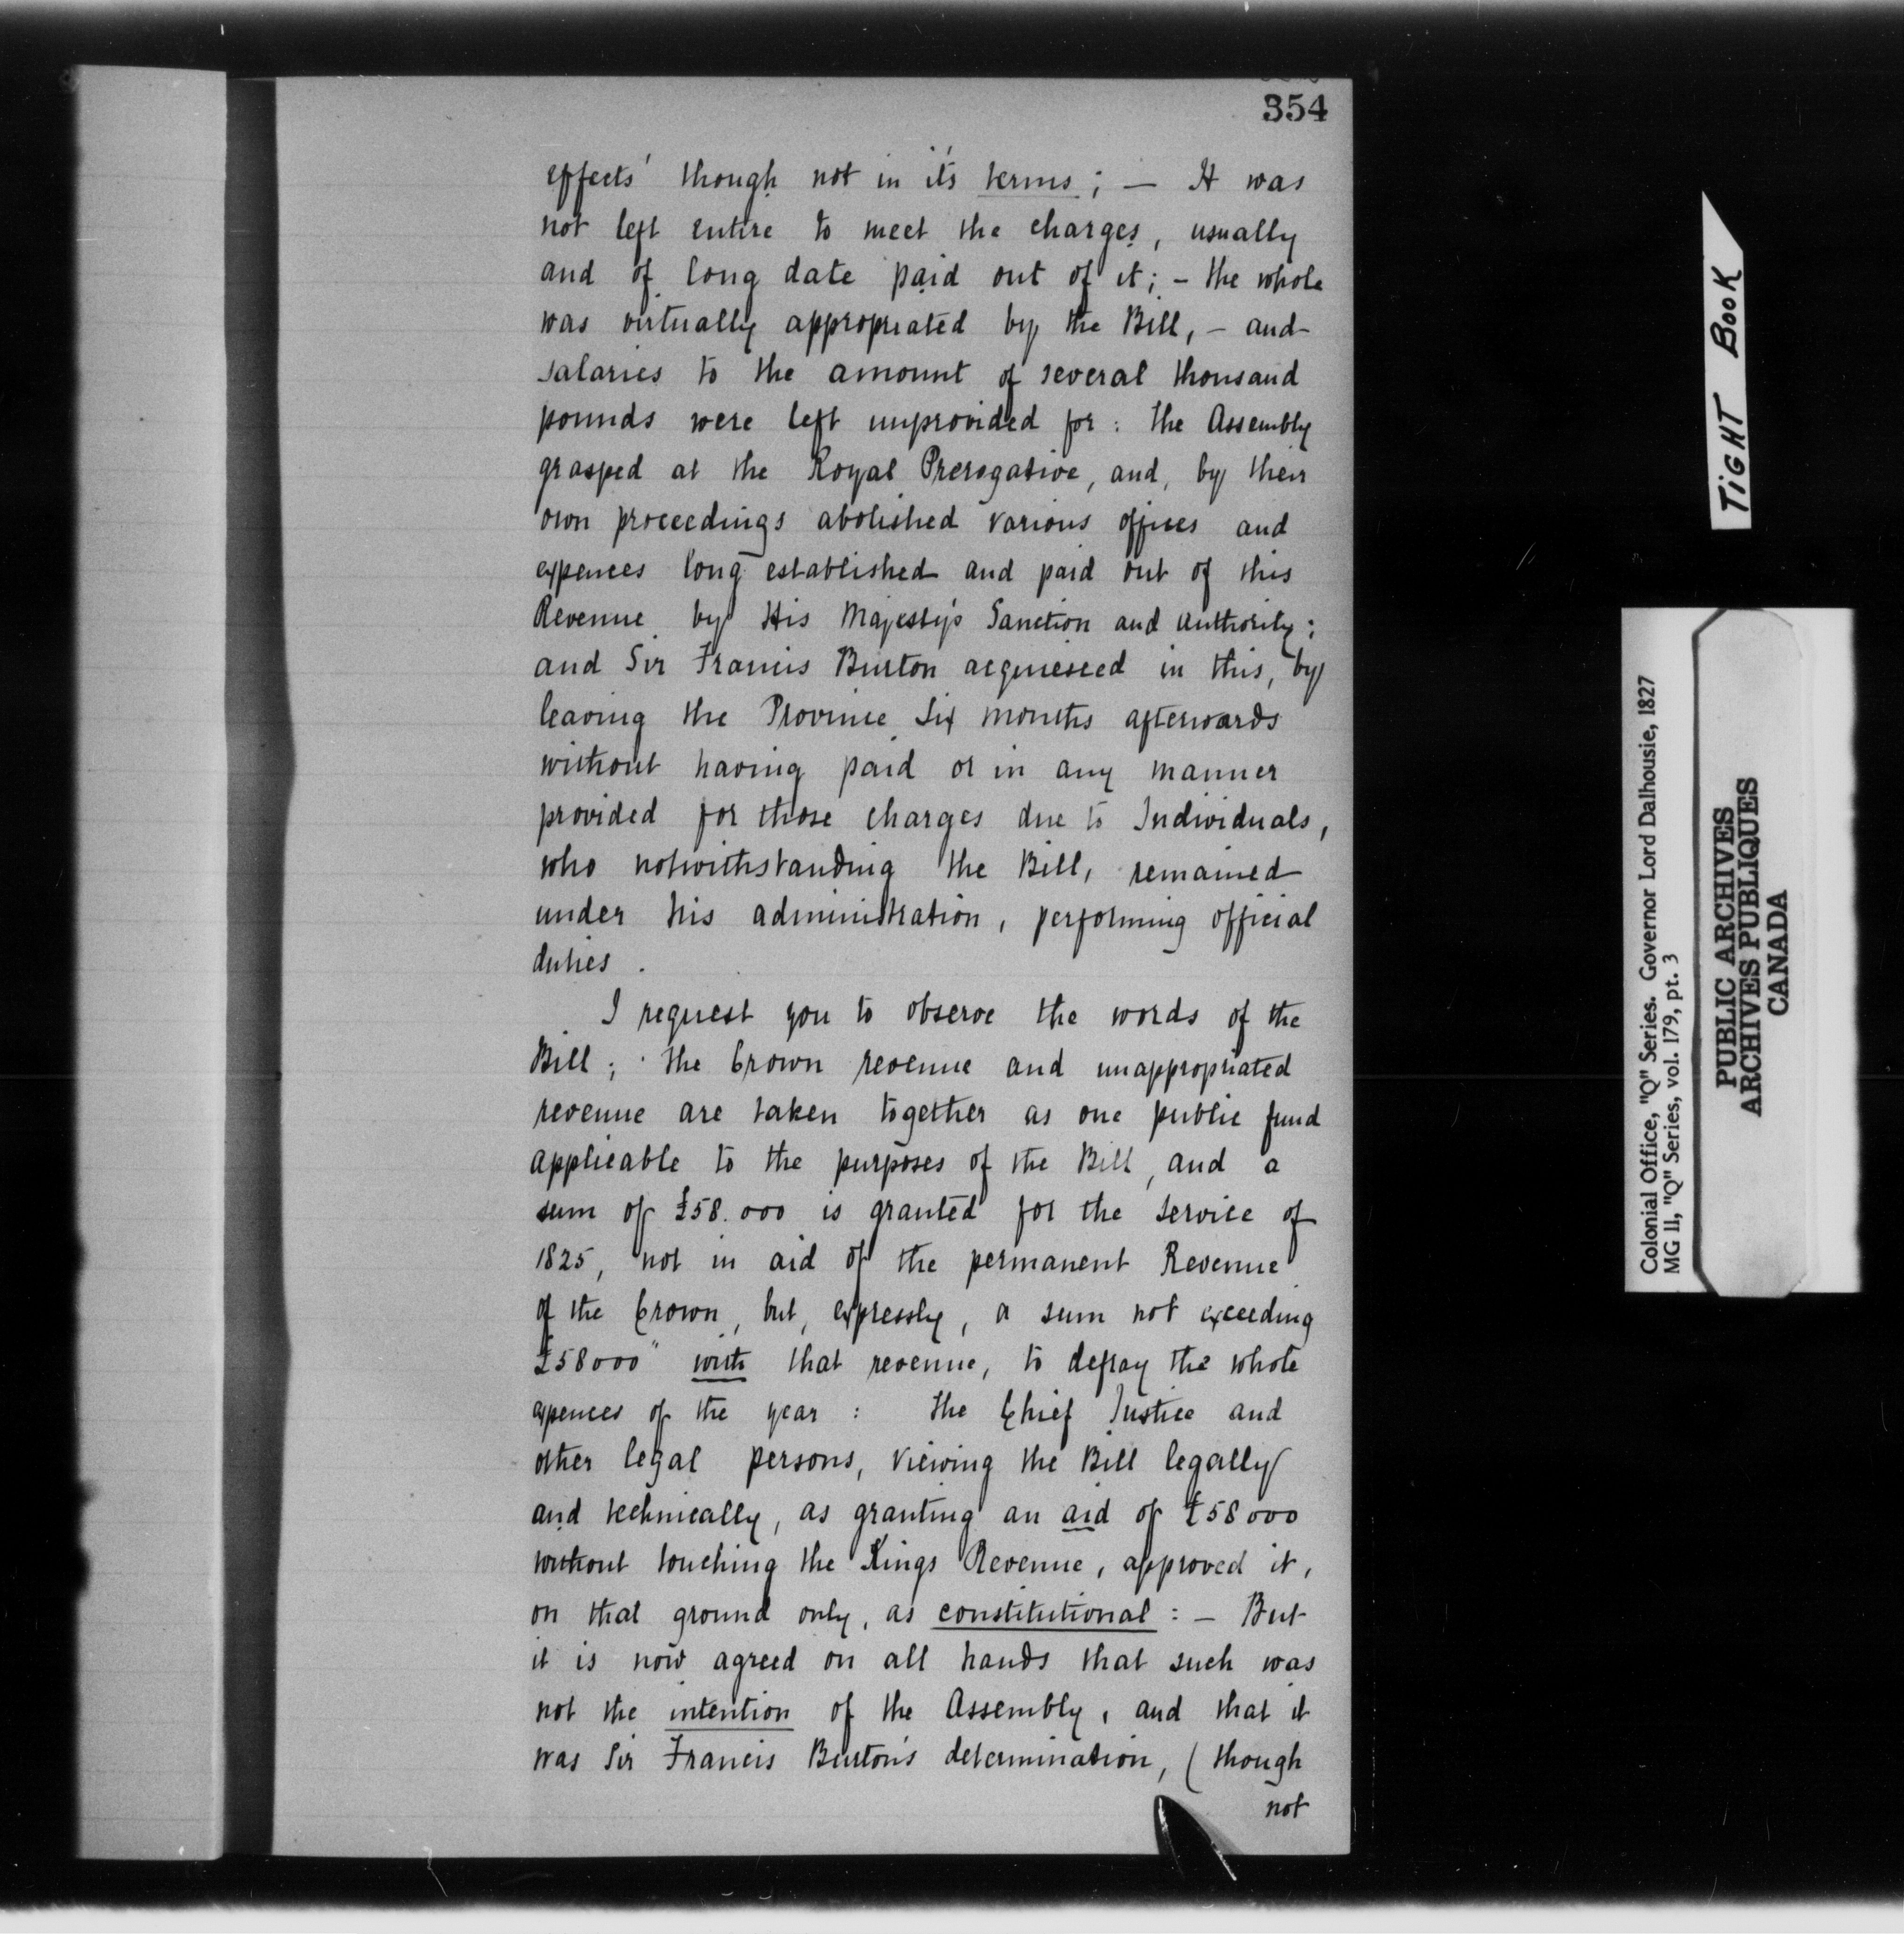 354
effects' though not in it's terms ; — It was
not left entire to meet the charges, usually
and of long date paid out of it ; – the whole
was virtually appropriated by the Bill, – and
salaries to the amount of several thousand
pounds were left unprovided for : the Assembly
grasped at the Royal Prerogative, and, by their
own proceedings abolished various offices and
expences long established and paid out of this
Revenue by His Majesty's Sanction and authority ;
and Sir Francis Burton acquiesced in this, by
leaving the Province Six months afterwards
without having paid or in any manner
provided for those charges due to Individuals,
who notwithstanding the Bill, remained
under his administration, performing official
duties .
I request you to observe the words of the
Bill ; the Crown revenue and unappropriated
revenue are taken together as one public fund
applicable to the purposes of the Bill, and a
sum of £58.000 is granted for the service of
1825, not in aid of the permanent Revenue
of the Crown, but, expressly, a sum not exceeding
£58000" with that revenue, to defray the whole
expences of the year : the Chief Justice and
other legal persons, viewing the Bill legally
and technically, as granting an aid of £58000
without touching the Kings Revenue, approved it,
on that ground only, as constitutional : – But
it is now agreed on all hands that such was
not the intention of the Assembly, and that it
was Sir Francis Burton's determination, ( though
not
TIGHT BOOK
Colonial Office, "Q" Series. Governor Lord Dalhousie, 1827
MG 11, "Q" Series, vol. 179, pt. 3
PUBLIC ARCHIVES
ARCHIVES PUBLIQUES
CANADA